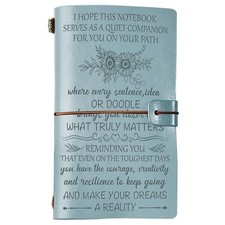 I HOPE THIS NOTEBOOK
SERVES AS A QUIET COMPANION
FOR YOU ON YOUR PATH
where every sentence, idea
OR DOODLE
brings you closer
WHAT TRULY MATTERS
REMINDING YOU
THAT EVEN ON THE TOUGHEST DAYS
you have the courage, creativity
and resilience to keep going
AND MAKE YOUR DREAMS
A REALITY